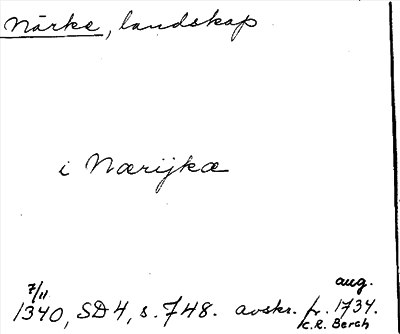 Närke, landskap
i Nærijkæ
7/11 aug.
1340, SD4, s. 748. avskr. fr. 1734.
C.R. Berch